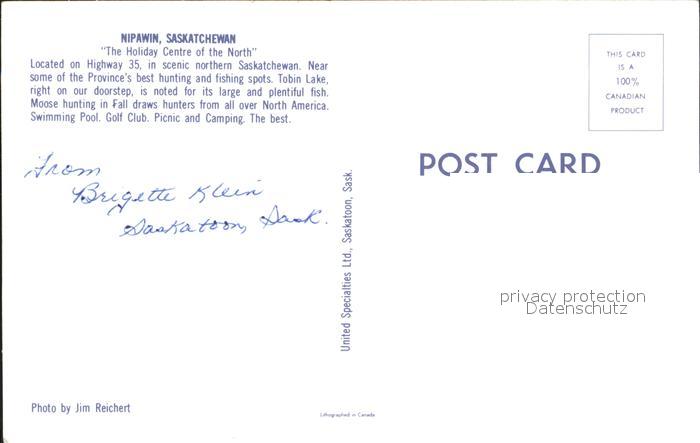 NIPAWIN, SASKATCHEWAN
"The Holiday Centre of the North"
Located on Highway 35, in scenic northern Saskatchewan. Near
some of the Province's best hunting and fishing spots. Tobin Lake,
right on our doorstep, is noted for its large and plentiful fish.
Moose hunting in Fall draws hunters from all over North America.
Swimming Pool. Golf Club. Picnic and Camping. The best.
From
Brigette Klein
Saskatoon, Sask.
Photo by Jim Reichert
United Specialties Ltd., Saskatoon, Sask.
Lithographed in Canada
THIS CARD
IS A
100%
CANADIAN
PRODUCT
POST CARD
privacy protection
Datenschutz